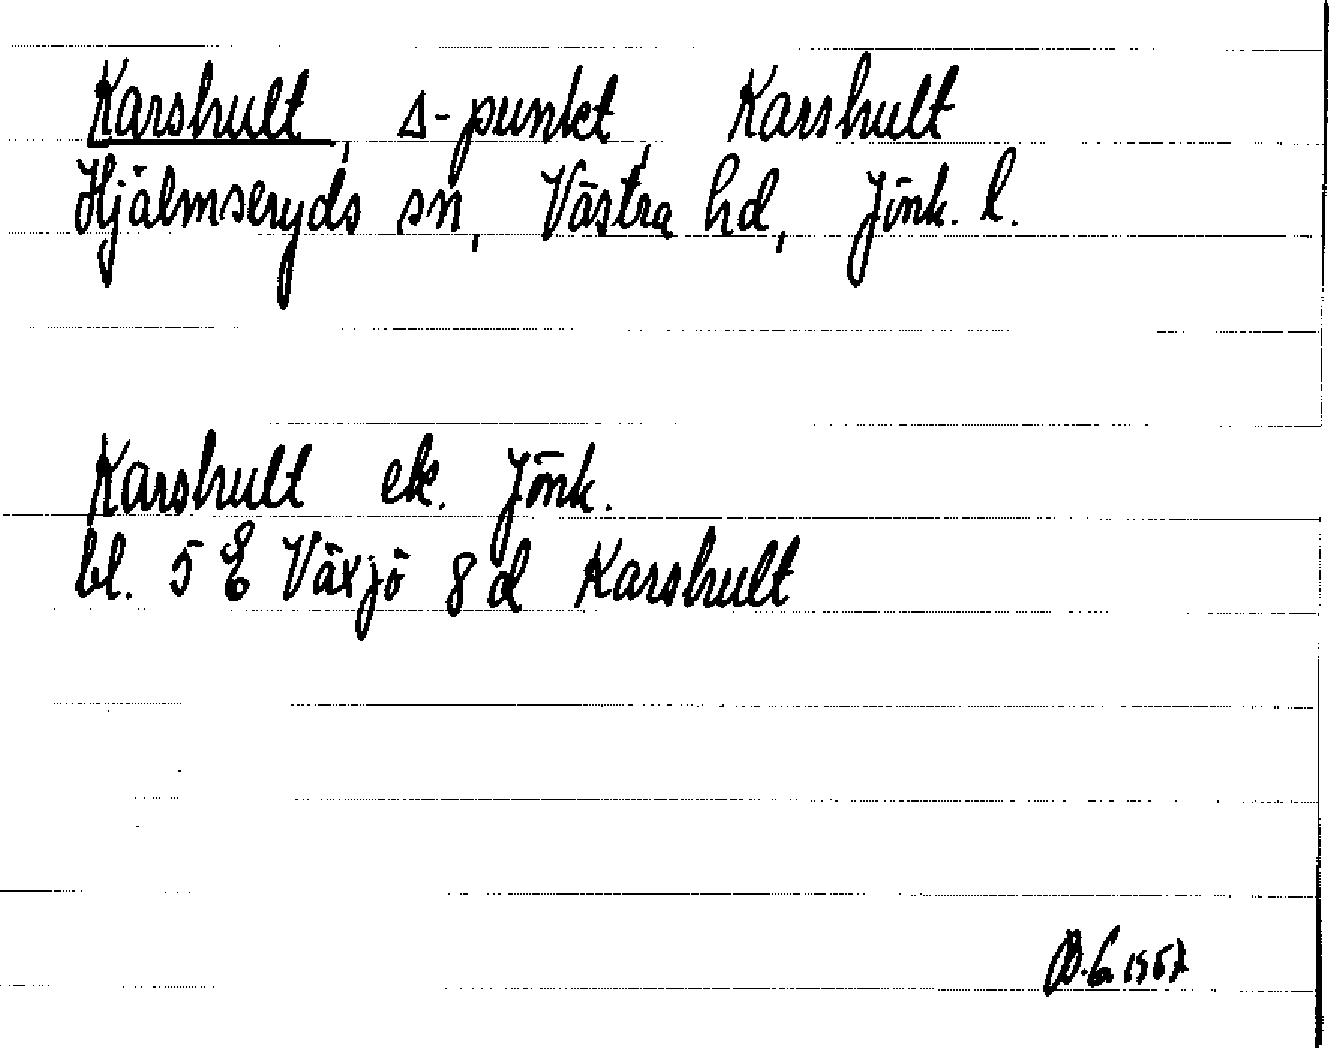 Karshult, Δ-punkt, Karshult
Hjälmseryds sn, Västra hd, Jönk. l.
Karshult ek. Jönk.
bl. 5 E Växjö 8 d Karshult